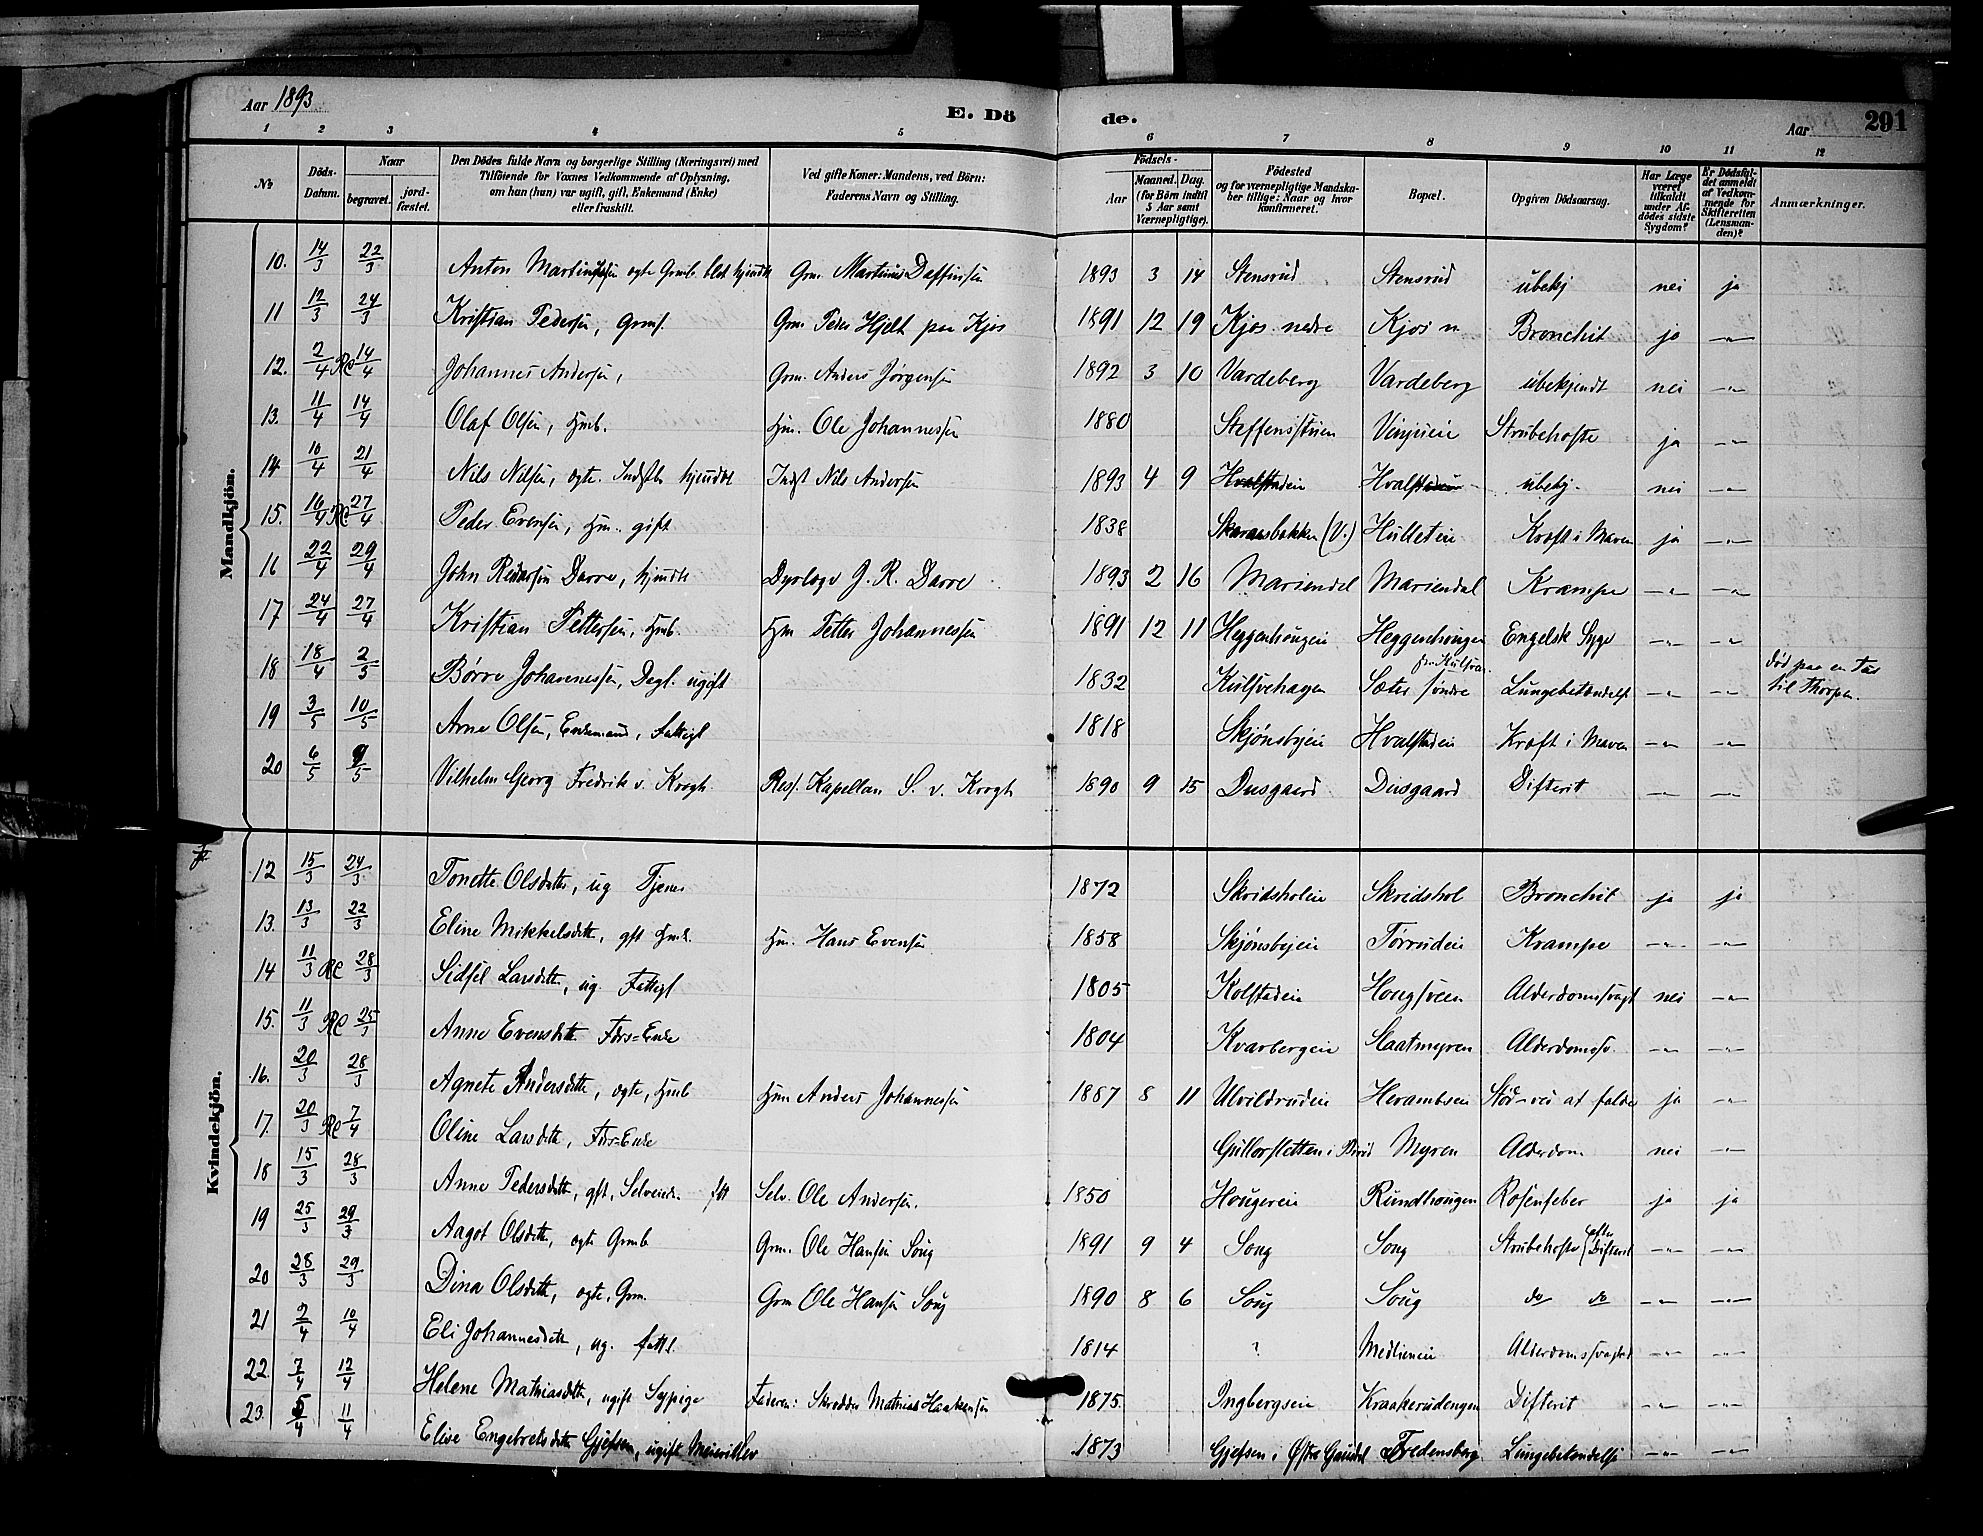 Aar 1893
E. Dö
de.
Aar
291
1 2 3 4 5 6 7 8 9 10 11 12
№
Döds-Datum.
Naar
begravet.
jord-fæstet.
Den Dödes fulde Navn og borgerlige Stilling (Næringsvei) med
Tilföiende for Voxnes Vedkommende af Oplysning,
om han (hun) var ugift, gift, Enkemand (Enke)
eller fraskilt.
Ved gifte Koner: Mandens, ved Börn:
Faderens Navn og Stilling.
Födsels-
Aar
Maaned. Dag.
(for Börn indtil
5 Aar samt
Værnepligtige).
Födested
og for værnepligtige Mandska-
ber tillige: Naar og hvor
konfirmeret.
Bopæl.
Opgiven Dödsaarsag.
Har Læge
været
tilkaldt
under Af-
dödes sidste
Sygdom?
Er Dödsfal-
det anmeldt
af Vedkom-
mende for
Skifteretten
(Lensman-
den)?
Anmærkninger.
Mandkjön.
10. 14/3 22/3 Anton Martinsen ogte Grmb. blot hjemdt Grm. Martinus Daffinsen 1893 3 14 Stensrud Stensrud ubekj nei ja
11 12/3 24/3 Kristian Pedersen, Grmf. Grm. Peder Hjelt paa Kjos 1891 12 19 Kjos nedre Kjos n Bronchit ja -"-
12. 2/4 RC 14/4 Johannes Andersen, Grm. Anders Jørgensen 1892 3 10 Vardeberg Vardeberg ubekjendt nei -"-
13. 11/4 14/4 Olaf Olsen, Hmb. Hm. Ole Johannessen 1880 Steffensstuen Vinjueie Strubehoste ja -"-
14 10/4 21/4 Nils Nilsen, ogte. Indstb hjemdt Indst Nils Andersen 1893 4 9 Hvalstadeie Hvalstadeie ubekj. nei -"-
15. 16/4 RC 27/4 Peder Evensen, Hm. gift 1838 Skaraasbakken (V.) Hulleteie Kræft i Maven ja -"-
16 22/4 29/4 John Reidarsen Darre, hjemdt Dyrlæge J. R. Darre 1893 2 16 Mariendal Mariendal Krampe -"- -"-
17 24/4 27/4 Kristian Pettersen, Hmb. Hm Petter Johannessen 1891 12 11 Heggenhougen Heggenhougen Engelsk Syge -"- -"-
18 18/4 2/5 Børre Johannessen, Dagl. ugift 1832 Kulsvehagen Sæter søndre Lungebetændelse -"- -"- død paa en Tur
til Thorpen.
19 3/5 10/5 Arne Olsen, Enkemand, Fattigl 1818 Skjønsbyeie Hvalstadeie Kræft i Maven -"- -"-
20 6/5 9/5 Vilhelm Georg Fredrik v. Krogh. Res. Kapellan S. v. Krogh 1890 9 15 Dusgaard Dusgaard Difterit -"- -"-
Kvindekjön.
12 15/3 24/3 Tonette Olsdatter, ug Tjener 1872 Skridsholeie Skredshol Bronchit ja ja
13. 13/3 22/3 Eline Mikkelsdtt, gft Hmk. Hm. Hans Evensen 1858 Skjønsbyeie Tørrudeie Krampe -"- -"-
14 11/3 RC 28/3 Sidsel Larsdtt, ug. Fattigl 1805 Kolstadeie Hougsveen Alderdomssvagh nei -"-
15. 11/3 RC 25/3 Anne Evensdtt Fdrs=Enke 1804 Kvarbergeie Slaatmyren Alderdomssv. -"- -"-
16. 20/3 28/3 Agnete Andersdtt, ogte, Hmb Hm Anders Johannessen 1887 8 11 Ulvildrudeie Herambseie Stød ved at falde ja -"-
17. 20/3 RC 7/4 Oline Larsdtt, Fdrs=Enke Gullorsletten i Birid Myren Alderdom nei -"-
18 15/3 28/3 Anne Pedersdtt, gft, Selveierk. ftt Selv. Ole Andersen. 1850 Hougereie Rundhougen Rosenfeber ja ja
19 25/3 29/3 Aagot Olsdtt, ogte Grmb Grm. Ole Hansen Soug 1891 9 4 Soug Soug Strubehoste (efter Difterit -"- -"-
20 28/3 29/3 Dina Olsdtt, ogte, Grm. Grm Ole Hansen Soug 1890 8 6 Soug Soug do do -"- -"-
21 2/4 10/4 Eli Johannesdtt, ug. fattl. 1814 ? Medlieneie Alderdomssvaghed -"- -"-
22. 7/4 12/4 Helene Mathiasdtt, ugift Sypige Faderen: Skrædder Mathias Haakensen 1875. Ingbergseie Kraakerudengen Difterit -"- -"-
23. 5/4 11/4 Elise Engebretsdtt Gjefsen, ugift Meieriskev 1873 Gjefsen i Østre Gausdal Fredensberg Lungebetændelse -"- -"-